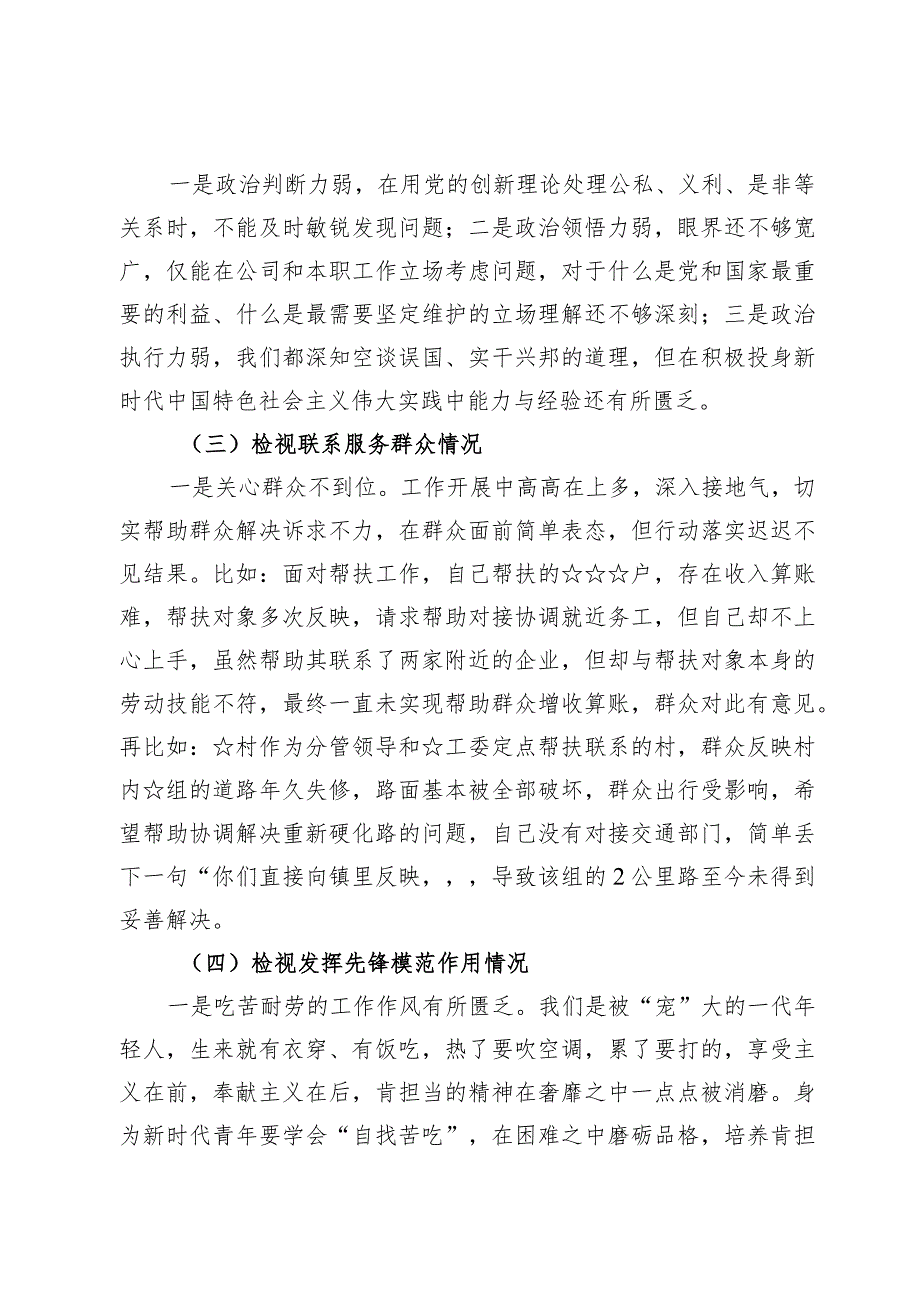 一是政治判断力弱，在用党的创新理论处理公私、义利、是非等
关系时，不能及时敏锐发现问题；二是政治领悟力弱，眼界还不够宽
广，仅能在公司和本职工作立场考虑问题，对于什么是党和国家最重
要的利益、什么是最需要坚定维护的立场理解还不够深刻；三是政治
执行力弱，我们都深知空谈误国、实干兴邦的道理，但在积极投身新
时代中国特色社会主义伟大实践中能力与经验还有所匮乏。
（三）检视联系服务群众情况
一是关心群众不到位。工作开展中高高在上多，深入接地气，切
实帮助群众解决诉求不力，在群众面前简单表态，但行动落实迟迟不
见结果。比如：面对帮扶工作，自己帮扶的☆☆☆户，存在收入算账
难，帮扶对象多次反映，请求帮助对接协调就近务工，但自己却不上
心上手，虽然帮助其联系了两家附近的企业，但却与帮扶对象本身的
劳动技能不符，最终一直未实现帮助群众增收算账，群众对此有意见。
再比如：☆村作为分管领导和☆工委定点帮扶联系的村，群众反映村
内☆组的道路年久失修，路面基本被全部破坏，群众出行受影响，希
望帮助协调解决重新硬化路的问题，自己没有对接交通部门，简单丢
下一句“你们直接向镇里反映，，，导致该组的2公里路至今未得到
妥善解决。
（四）检视发挥先锋模范作用情况
一是吃苦耐劳的工作作风有所匮乏。我们是被“宠”大的一代年
轻人，生来就有衣穿、有饭吃，热了要吹空调，累了要打的，享受主
义在前，奉献主义在后，肯担当的精神在奢靡之中一点点被消磨。身
为新时代青年要学会“自找苦吃”，在困难之中磨砺品格，培养肯担